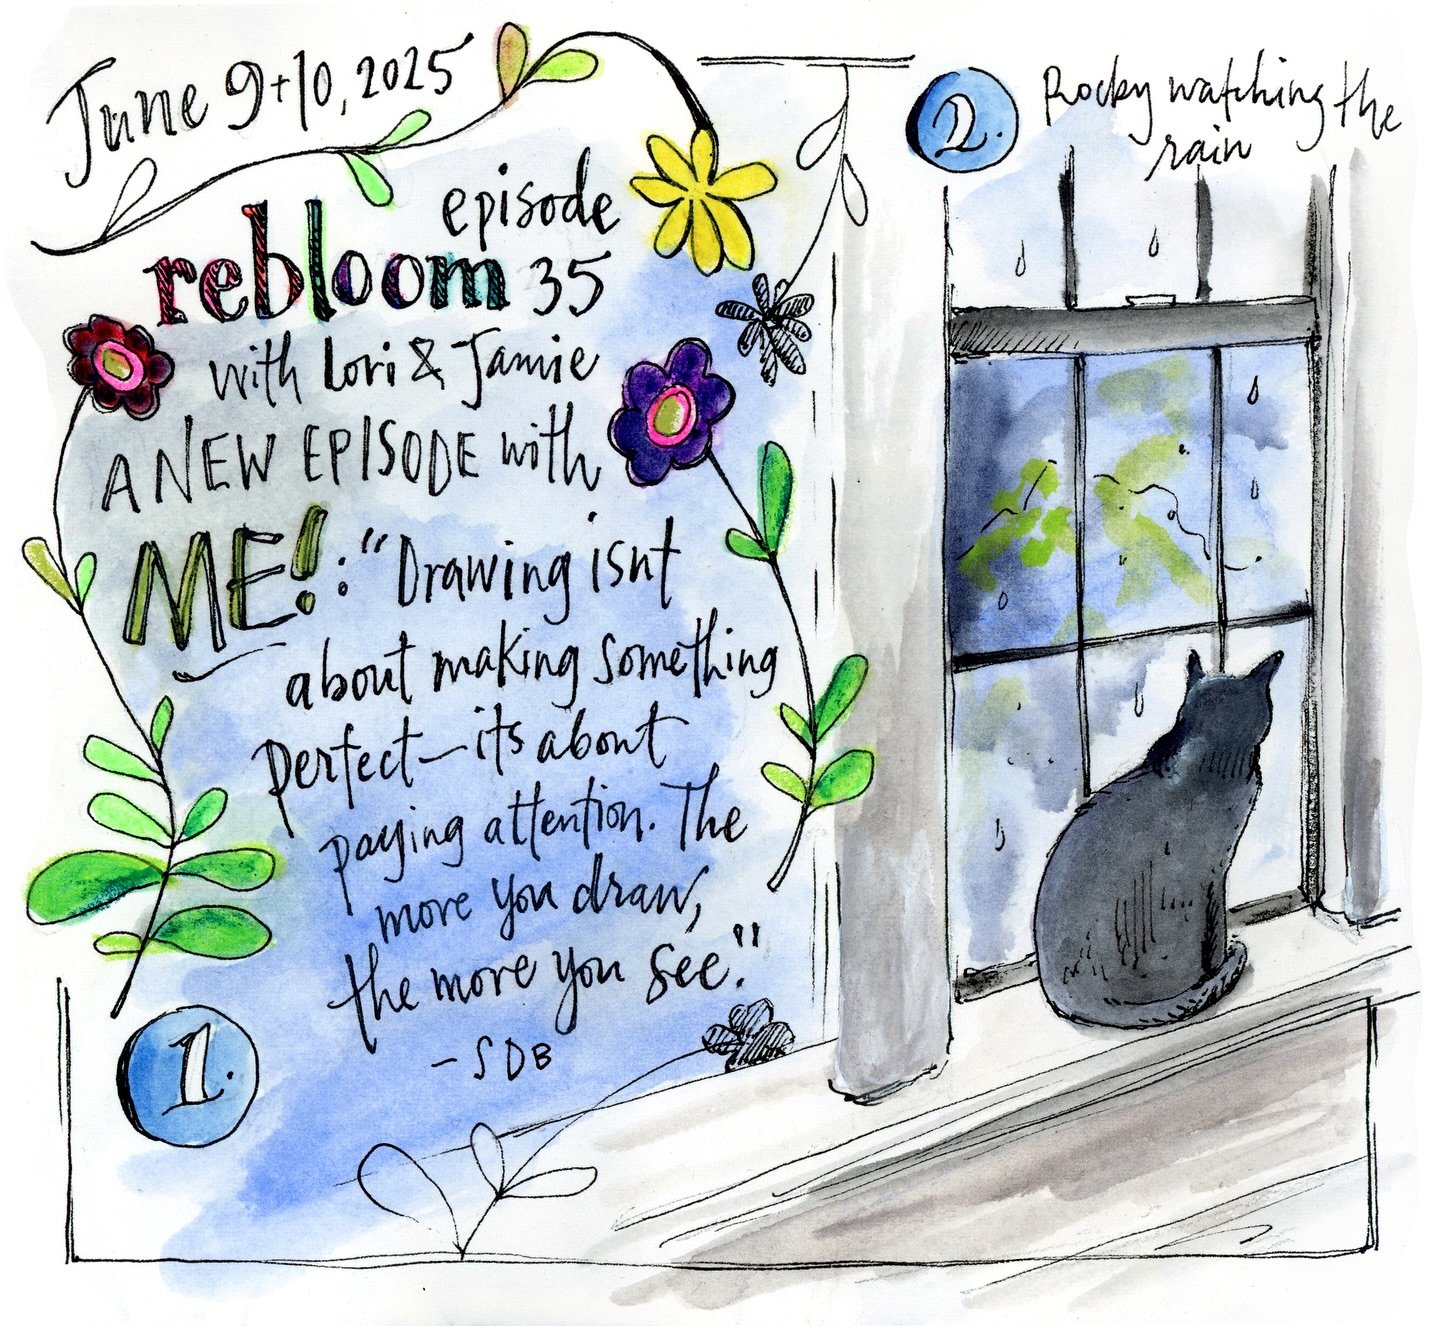 June 9+10, 2025
episode
rebloom 35
with Lori & Jamie
A NEW EPISODE with
ME!: "Drawing isnt
about making something
perfect—its about
paying attention. The
more you draw,
the more you see."
-SDB
1.
2. Rocky watching the
rain